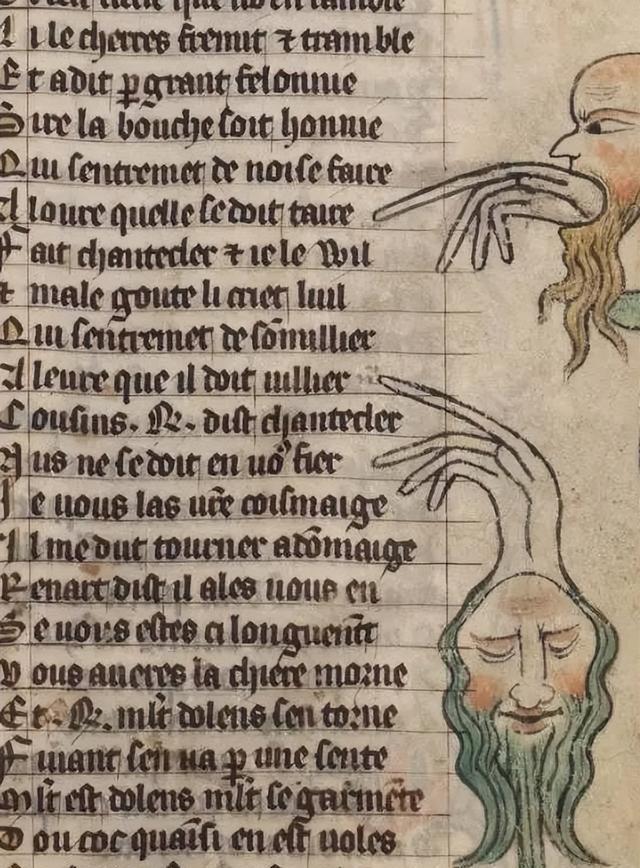 A i le cherres fremut ⁊ tramble
E t adit ꝑ grant felonnie
S ire la bouche soit honnie
Q ui sentremet de noise faire
A loure quelle se doit taire
F ait chantecler ⁊ ie le Vuil
male goute li criet luil
Q ui sẽtremet de sõmillier
A leure que il doit uillier
C ousins. R. dist chantecler
N us ne se doit en uo᷒ fier
J e uous las urẽ coismaige
J l me dut tourner adõmaige
R enart dist il ales uous en
S e uous estes ci longuemẽt
V ous aueres la chiere morne
E t. R. ml̃t dolens sen torne
F uiant sen ua ꝑ une sente
M l̃t est dolens ml̃t se garmẽte
D ou coc quainsi en est uoles